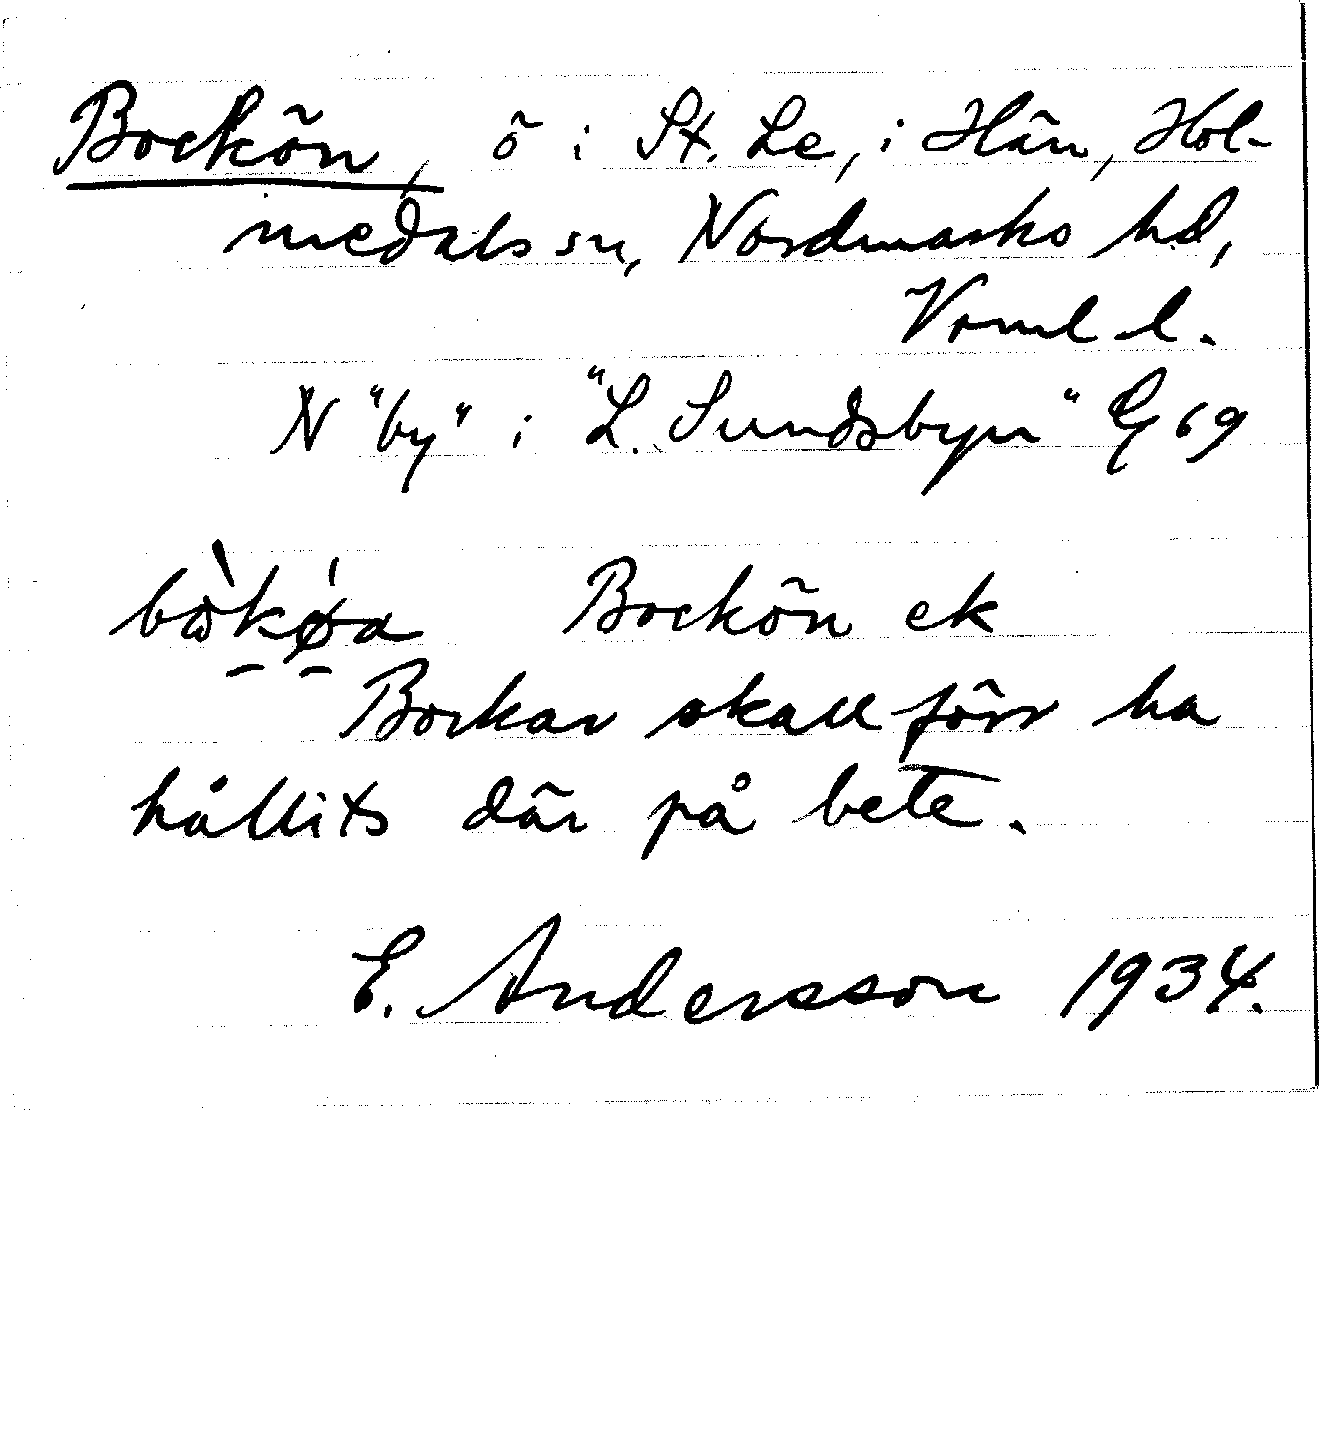 Bockön, ö i St. Le, i Hän, Hol-
medals sn, Nordmarks hd,
Värml l.
N "by" i "L. Sundsbyn" G 69
bòkø̀a Bockön ek
Bockar skall förr ha
hållits där på bete.
E. Andersson 1934.